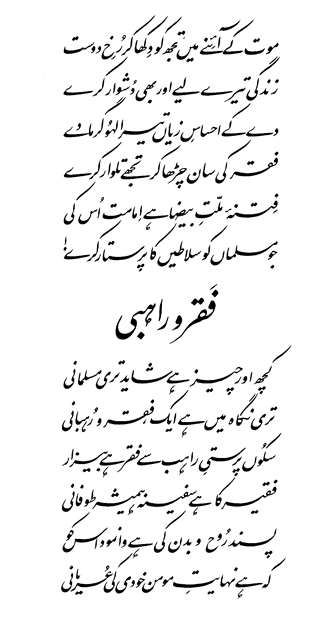 موت کے آئنے میں تجھ کو دِکھا کر رُخِ دوست
زندگی تیرے لیے اور بھی دُشوار کرے
دے کے احساسِ زیاں تیرا لہُو گرما دے
فقر کی سان چڑھا کر تجھے تلوار کرے
فتنۂ ملّتِ بیضا ہے امامت اُس کی
جو مسلماں کو سلاطیں کا پرستار کرے!
فَقر و راہبی
کچھ اور چیز ہے شاید تری مسلمانی
تری نگاہ میں ہے ایک فقر و رُہبانی
سکُوں پرستیِ راہب سے فقر ہے بیزار
فقیر کا ہے سفینہ ہمیشہ طوفانی
پسند رُوح و بدن کی ہے وا نمود اس کو
کہ ہے نہایتِ مومن خودی کی عُریانی